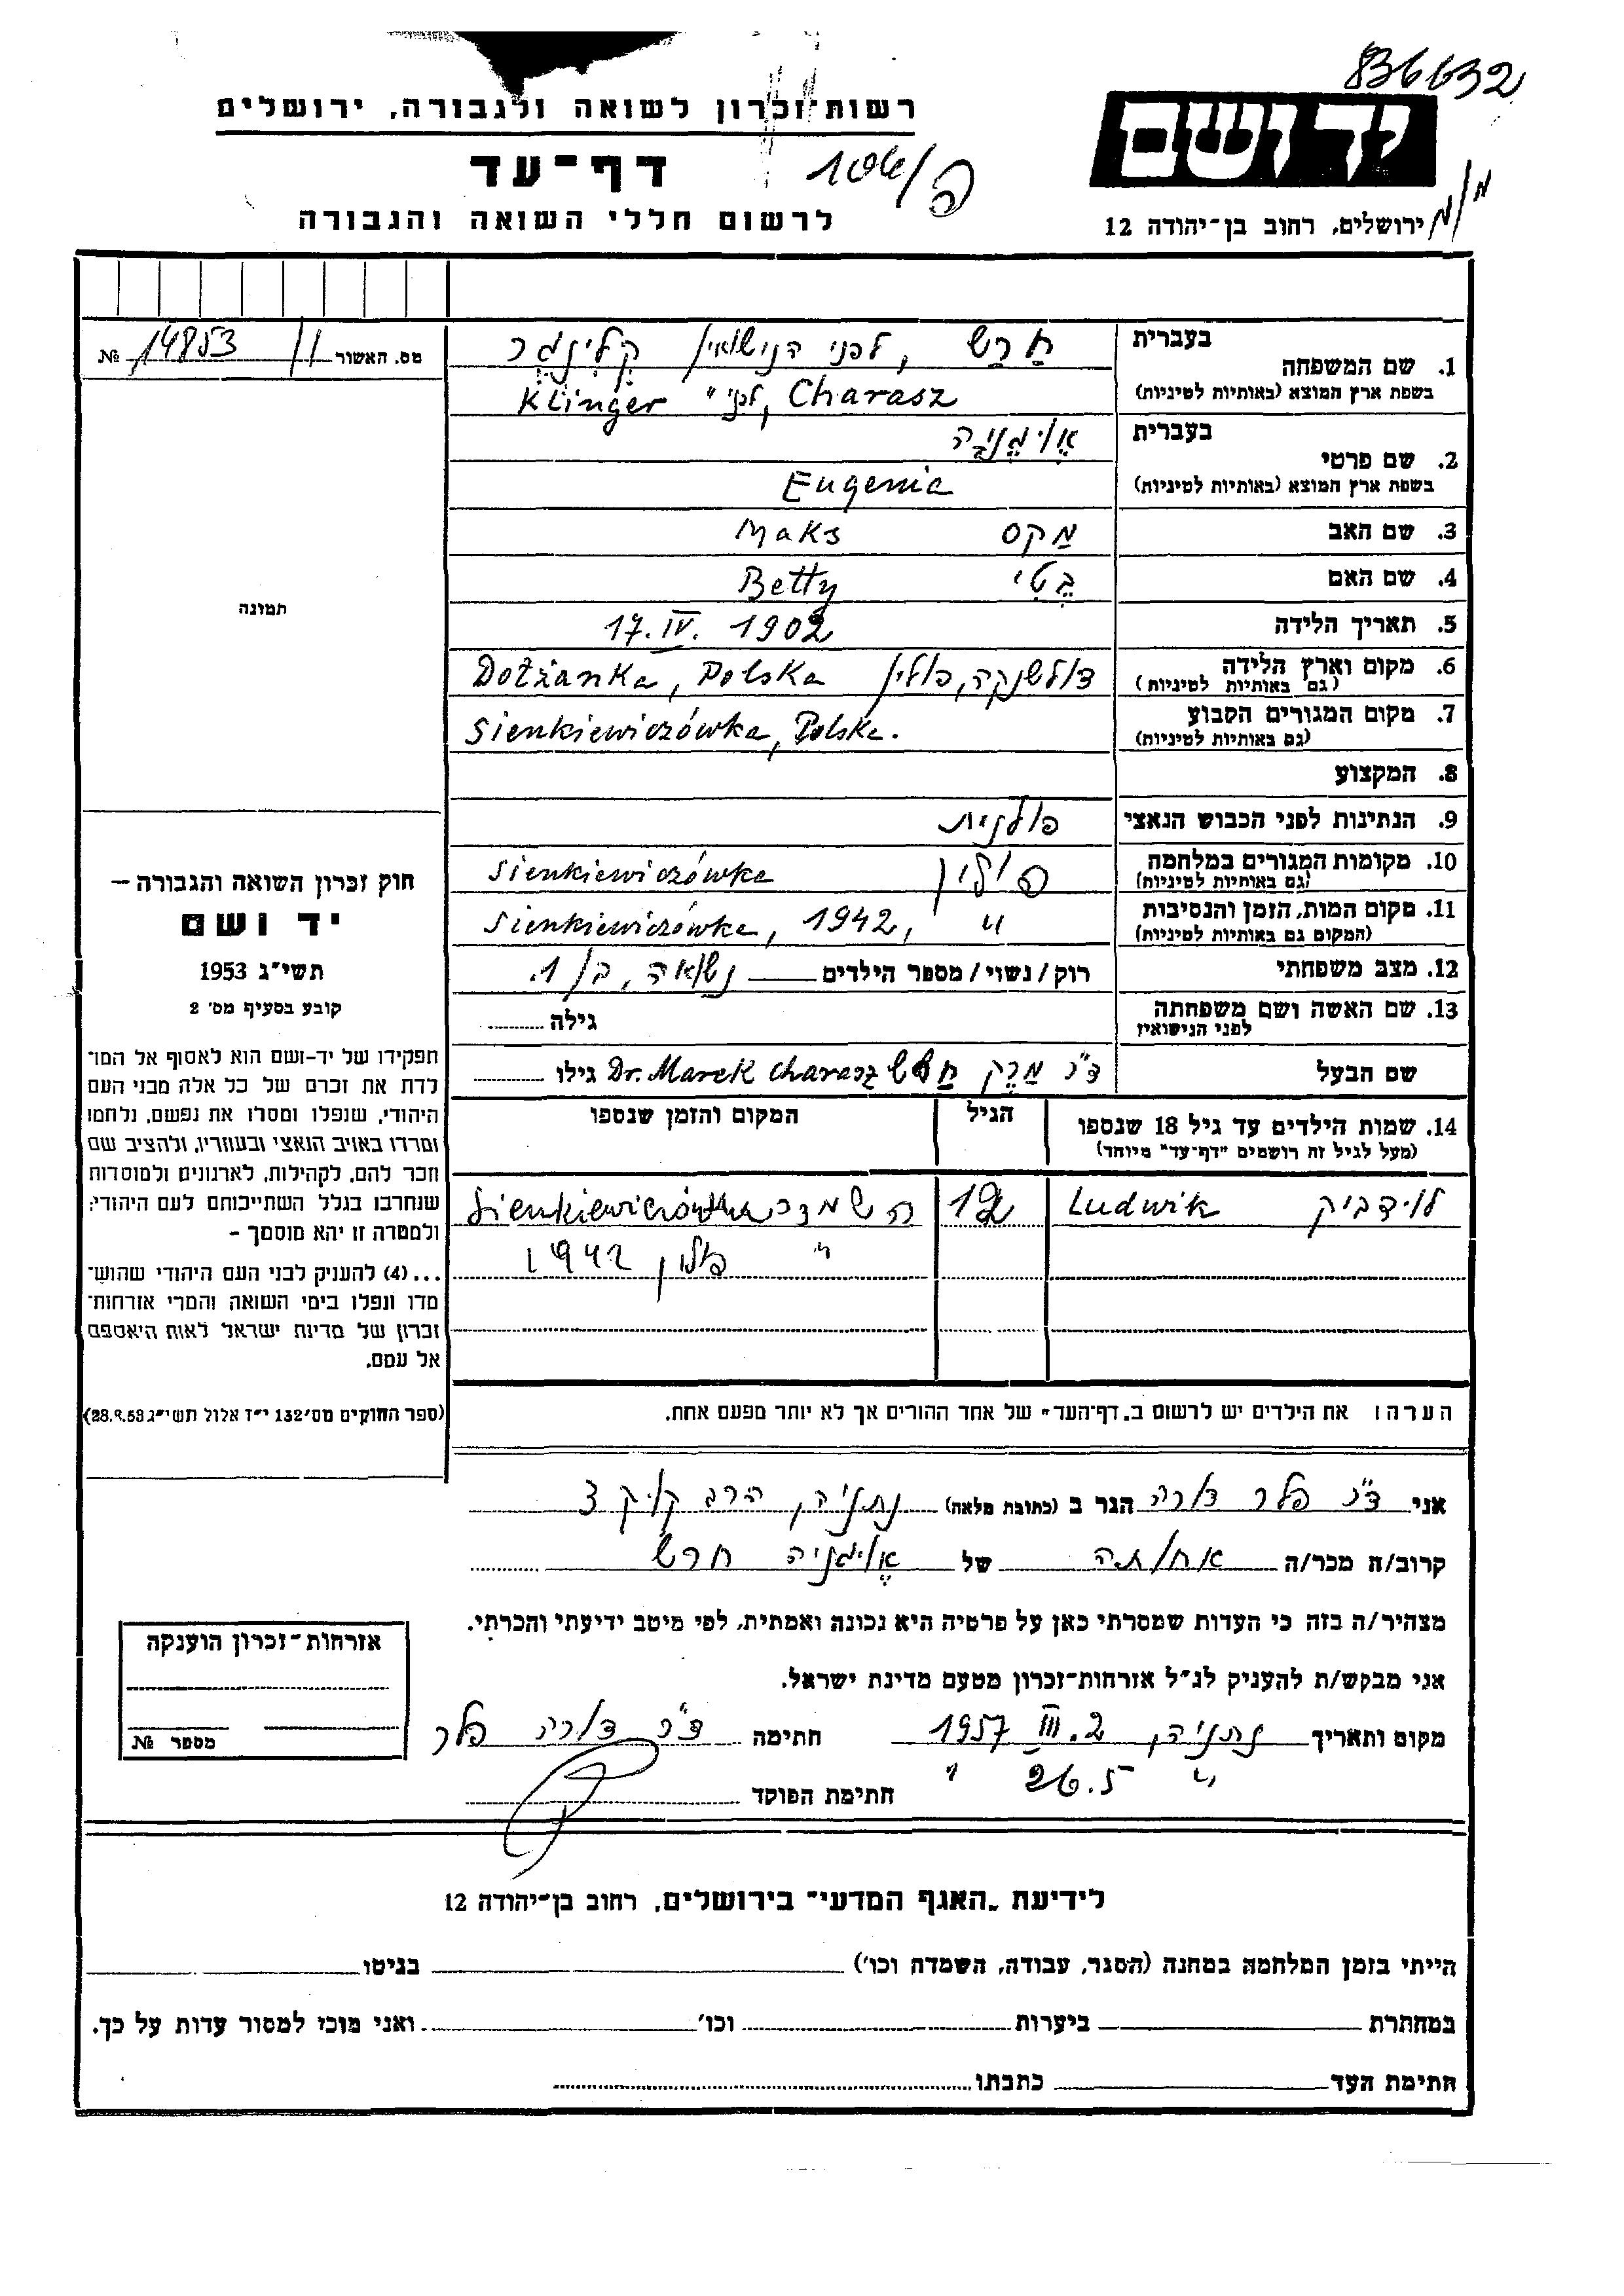 836632
רשות-זכרון לשואה ולגבורה, ירושלים
יד ושם
דף-עד
לרשום חללי השואה והגבורה
ירושלים, רחוב בן-יהודה 12
מס. האשור 14853 № 11
בעברית חַרַש, לפני הנישואין קלינגר
1. שם המשפחה
בשפת ארץ המוצא (באותיות לטיניות) Charasz, לפני " Klinger
בעברית אוימניה
2. שם פרטי
בשפת ארץ המוצא (באותיות לטיניות) Eugenia
3. שם האב מַקס Maks
4. שם האם בֶּטִי Betty
תמונה
5. תאריך הלידה 17.IV. 1902
6. מקום וארץ הלידה דולשנקה, פולין Dołżanka, Polska
(גם באותיות לטיניות)
7. מקום המגורים הקבוע Sienkiewiczówka, Polska.
(גם באותיות לטיניות)
8. המקצוע
9. הנתינות לפני הכבוש הנאצי פולנית
10. מקומות המגורים במלחמה פולין Sienkiewiczówka
(גם באותיות לטיניות)
11. מקום המות, הזמן והנסיבות " Sienkiewiczówka, 1942,
(המקום גם באותיות לטיניות)
12. מצב משפחתי רוק/נשוי/מספר הילדים נשואה, בן 1.
13. שם האשה ושם משפחתה גילה
לפני הנישואין
שם הבעל ד"ר מַרֶק חַרש Dr. Marek Charasz גילו
14. שמות הילדים עד גיל 18 שנספו הגיל המקום והזמן שנספו
(מעל לגיל זה רושמים "דף-עד" מיוחד)
לוידביק Ludwik 12 השמדה Sienkiewiczówka
" פולין 1942
הערה: את הילדים יש לרשום ב"דף-העד" של אחד ההורים אך לא יותר מפעם אחת.
חוק זכרון השואה והגבורה –
יד ושם
תשי"ג 1953
קובע בסעיף מס' 2
תפקידו של יד-ושם הוא לאסוף אל המו־
לדת את זכרם של כל אלה מבני העם
היהודי, שנפלו ומסרו את נפשם, נלחמו
ומרדו באויב הנאצי ובעוזריו, ולהציב שם
וזכר להם, לקהילות, לארגונים ולמוסדות
שנחרבו בגלל השתייכותם לעם היהודי;
ולמטרה זו יהא מוסמך –
...(4) להעניק לבני העם היהודי שהוש־
מדו ונפלו בימי השואה והמרי אזרחות־
זכרון של מדינת ישראל לאות היאספם
אל עמם.
(ספר החוקים מס' 132 י"ז אלול תשי"ג 28.8.53)
אני ד"ר פלר דורה הגר ב (כתובת מלאה) נתניה, הרב קוק 3
קרוב/ה מכר/ה אחותה של אויגניה חרש
מצהיר/ה בזה כי העדות שמסרתי כאן על פרטיה היא נכונה ואמתית, לפי מיטב ידיעתי והכרתי.
אני מבקש/ת להעניק לנ"ל אזרחות-זכרון מטעם מדינת ישראל.
מקום ותאריך נתניה, 2.III 1957 חתימה ד"ר דורה פלר
" 26.5 "
חתימת הפוקד
אזרחות-זכרון הוענקה
מספר №
לידיעת "האגף המדעי" בירושלים, רחוב בן-יהודה 12
הייתי בזמן המלחמה במחנה (הסגר, עבודה, השמדה וכו') בגיטו
במחתרת ביערות וכו' ואני מוכן למסור עדות על כך.
חתימת העד כתבתו